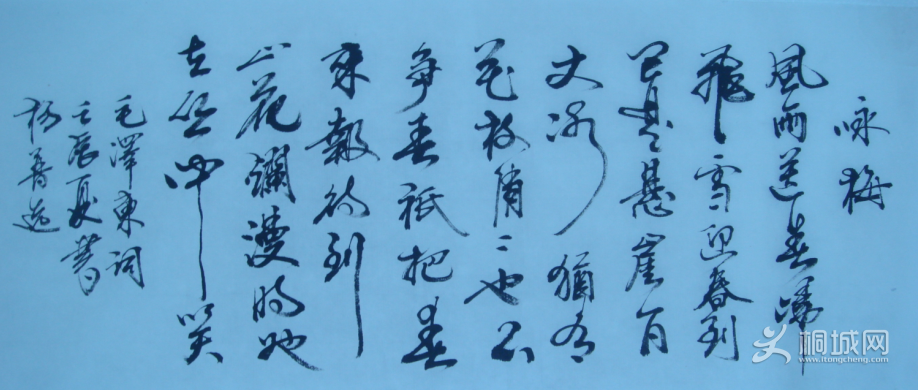 咏梅
風雨送春歸
飛雪迎春到
已是懸崖百
丈冰猶有
花枝俏〻也不
爭春祇把春
來報待到
山花瀾漫時她
在丛中笑
毛澤東詞
壬辰夏書
桐城网
www.itongcheng.com